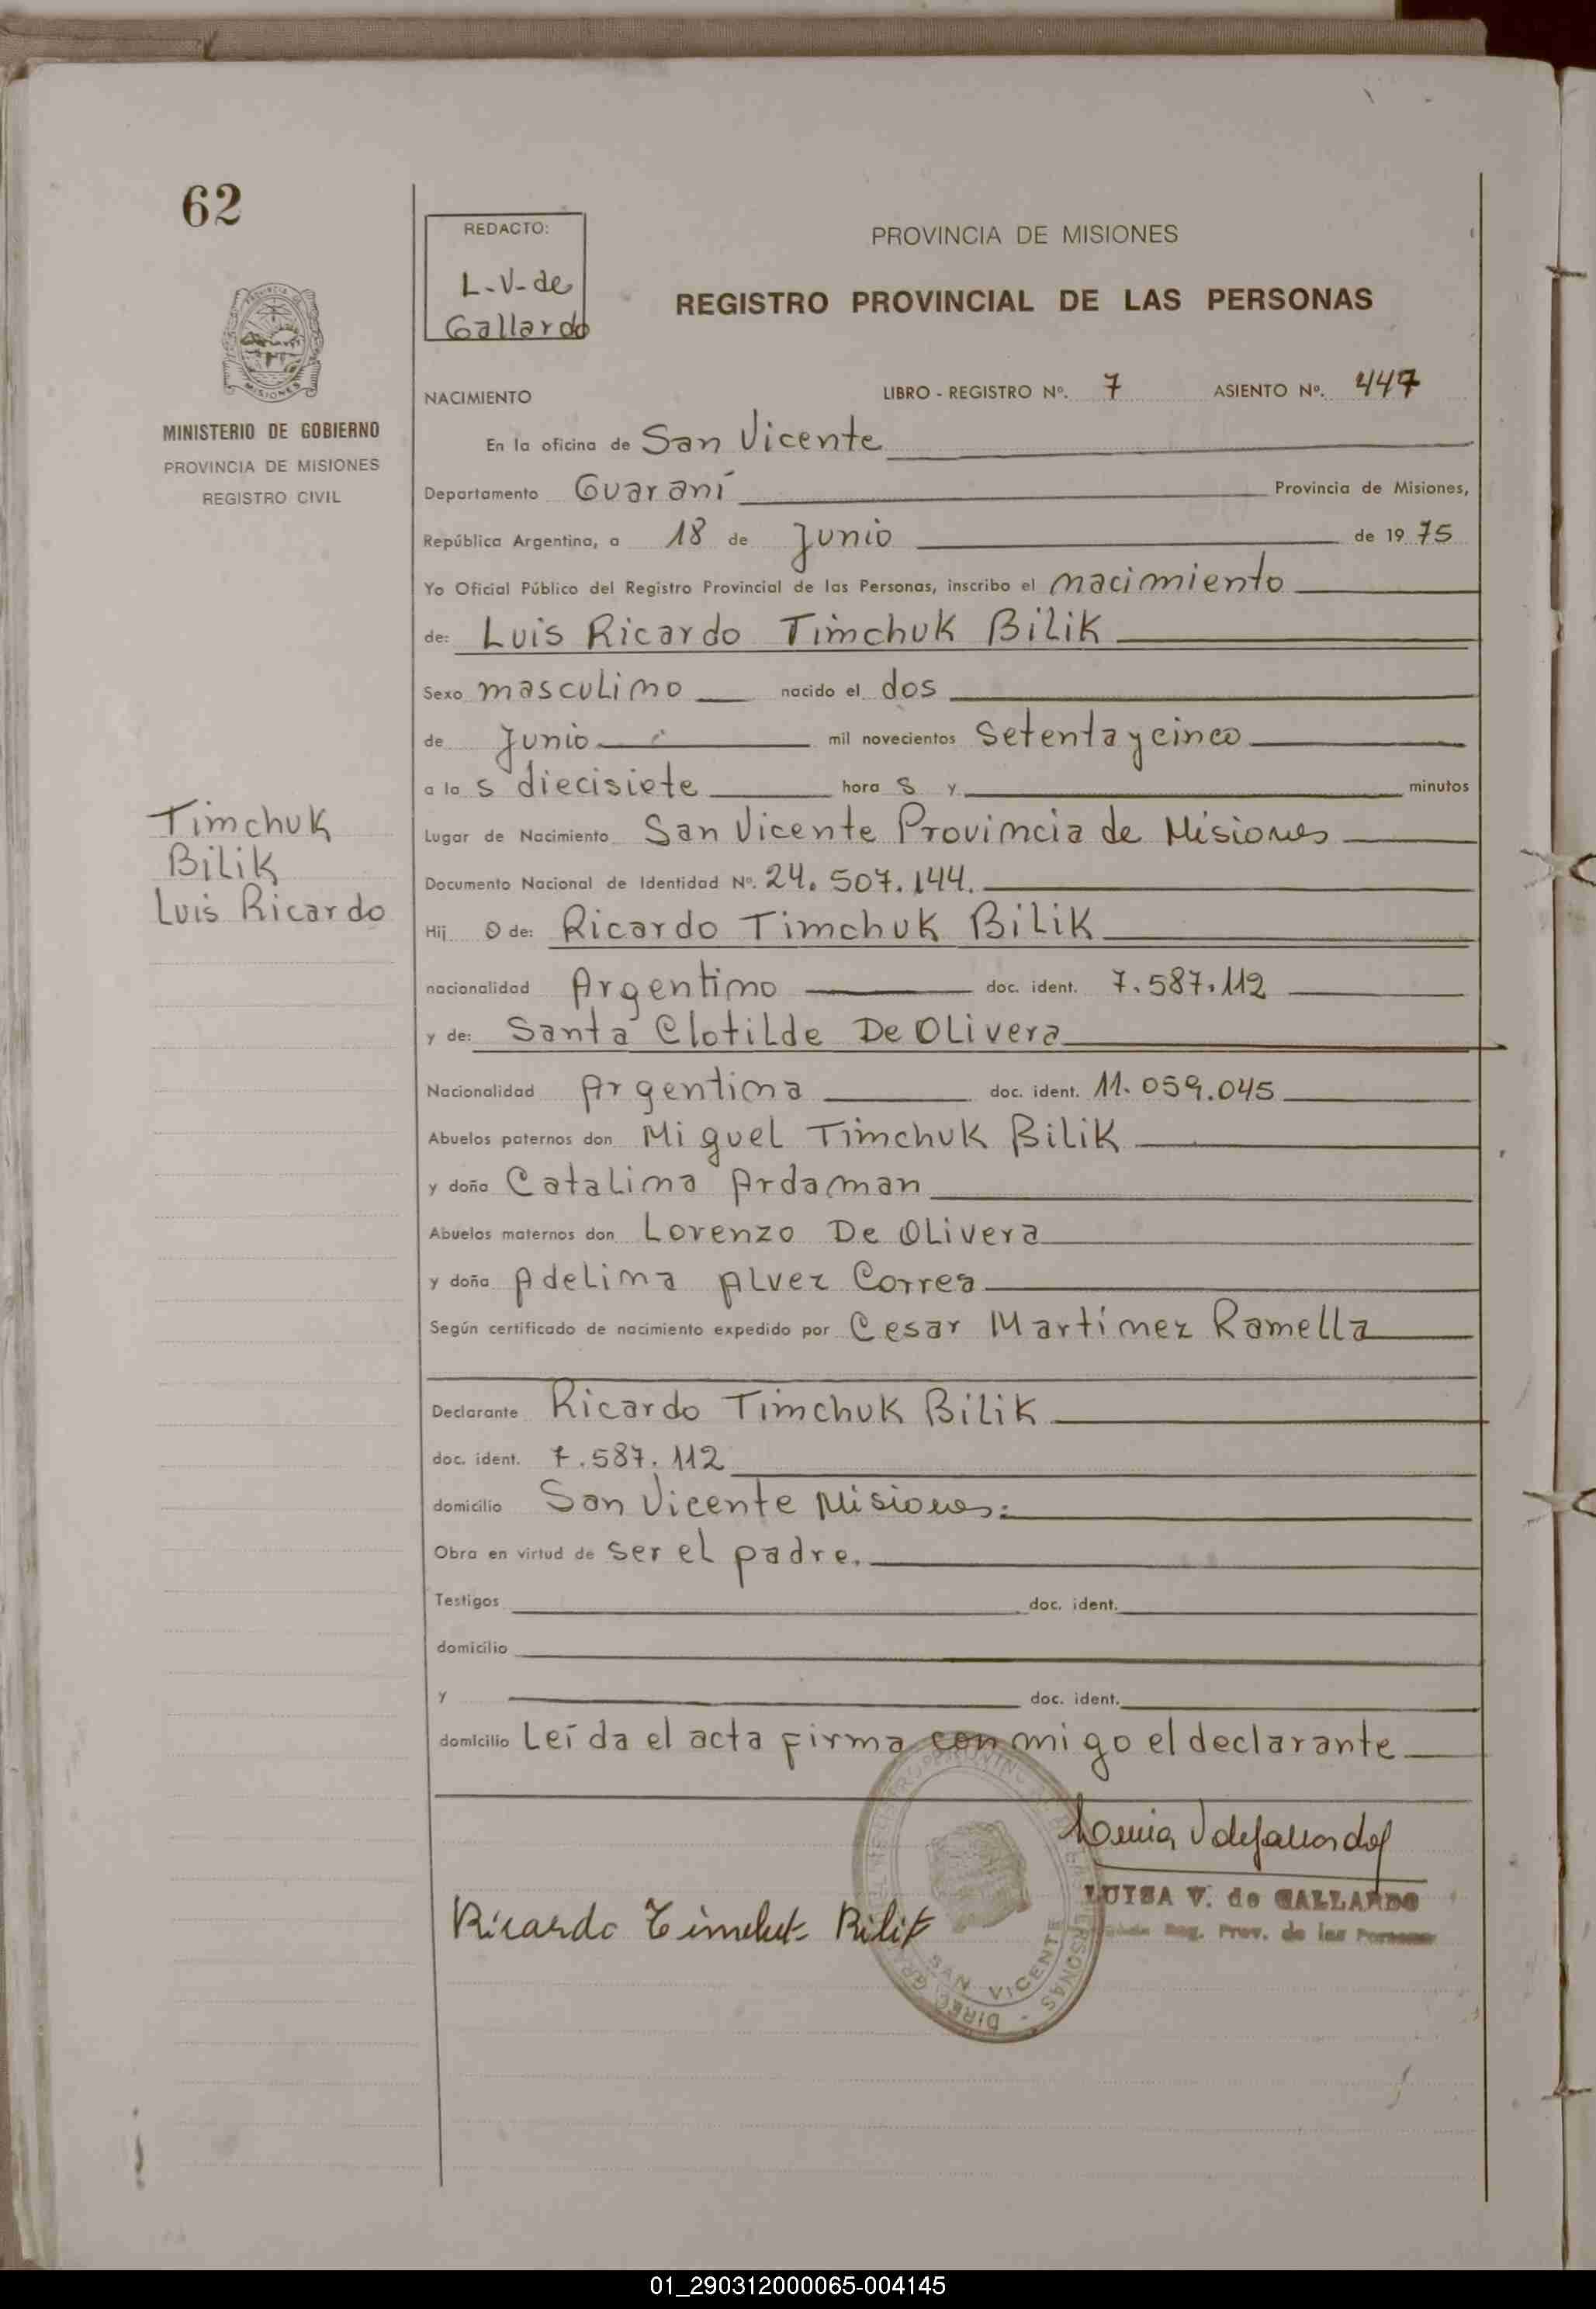 62
REDACTO:
L-V-de
Gallardo
PROVINCIA DE MISIONES
REGISTRO PROVINCIAL DE LAS PERSONAS
MINISTERIO DE GOBIERNO
PROVINCIA DE MISIONES
REGISTRO CIVIL
NACIMIENTO LIBRO - REGISTRO Nº. 7 ASIENTO Nº. 447
En la oficina de San Vicente
Departamento Guaraní Provincia de Misiones,
República Argentina, a 18 de Junio de 19 75
Yo Oficial Público del Registro Provincial de las Personas, inscribo el nacimiento
de: Luis Ricardo Timchuk Bilik
Sexo masculino nacido el dos
de Junio mil novecientos Setenta y cinco
a la s diecisiete hora s y minutos
Timchuk
Bilik
Luis Ricardo
Lugar de Nacimiento San Vicente Provincia de Misiones
Documento Nacional de Identidad Nº. 24.507.144.
Hij o de: Ricardo Timchuk Bilik
nacionalidad Argentino doc. ident. 7.587.112
y de: Santa Clotilde De Olivera
Nacionalidad Argentina doc. ident. 11.059.045
Abuelos paternos don Miguel Timchuk Bilik
y doña Catalina Ardaman
Abuelos maternos don Lorenzo De Olivera
y doña Adelina Alvez Correa
Según certificado de nacimiento expedido por Cesar Martínez Ramella
Declarante Ricardo Timchuk Bilik
doc. ident. 7.587.112
domicilio San Vicente Misiones.
Obra en virtud de ser el padre.
Testigos doc. ident.
domicilio
y doc. ident.
domicilio Leída el acta firma conmigo el declarante
LUISA V. de GALLARDO
Reg. Prov. de las Personas
Ricardo Timchuk Bilik
SAN VICENTE
01_290312000065-004145